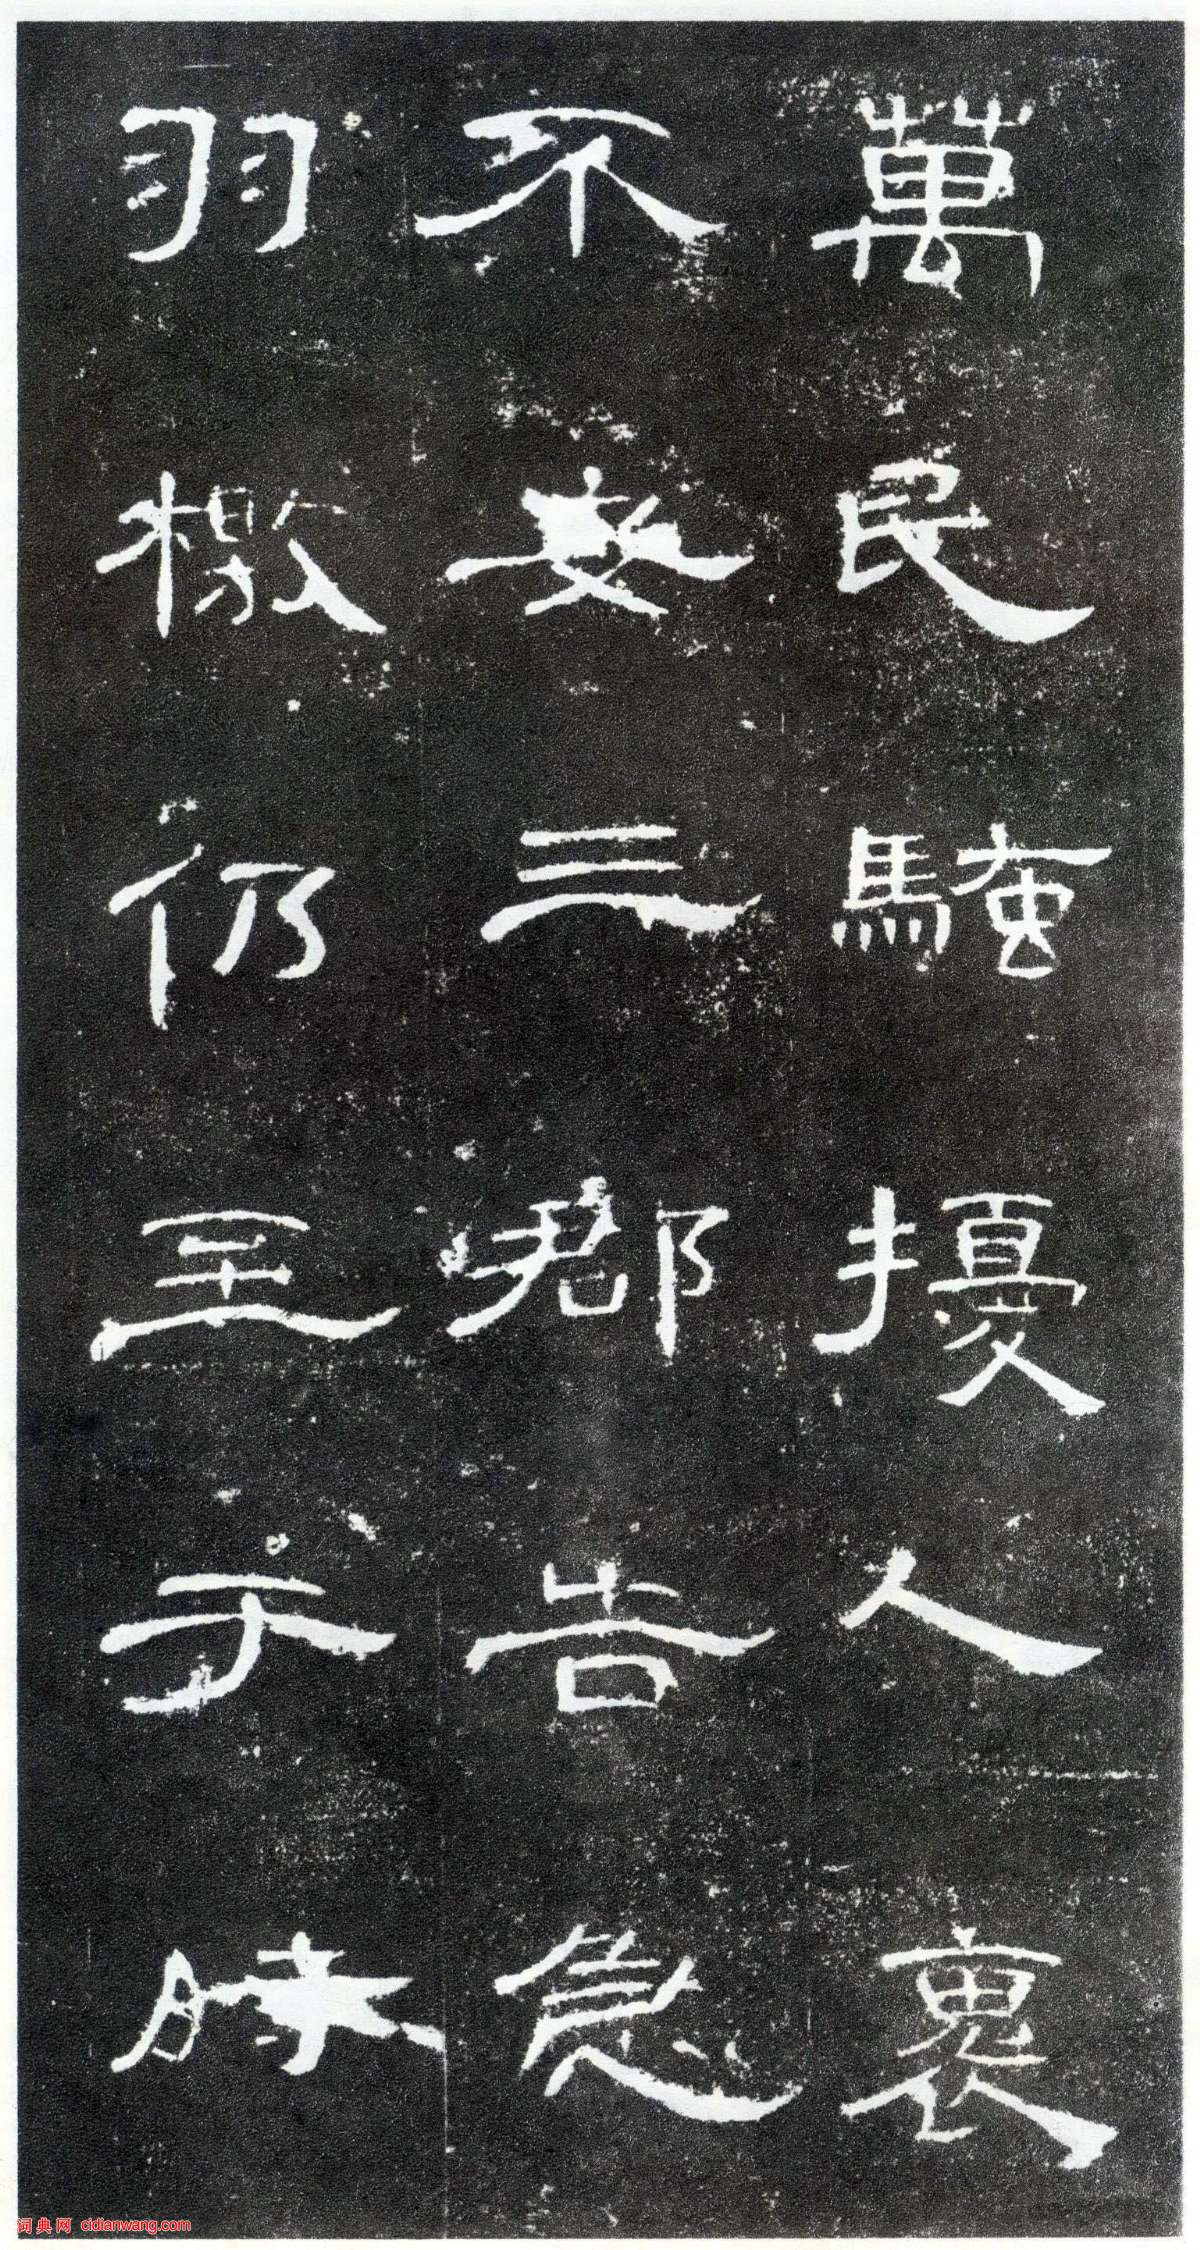 萬民騷擾人裹
不安三郡告急
羽檄仍至于時
词典网 cidianwang.com